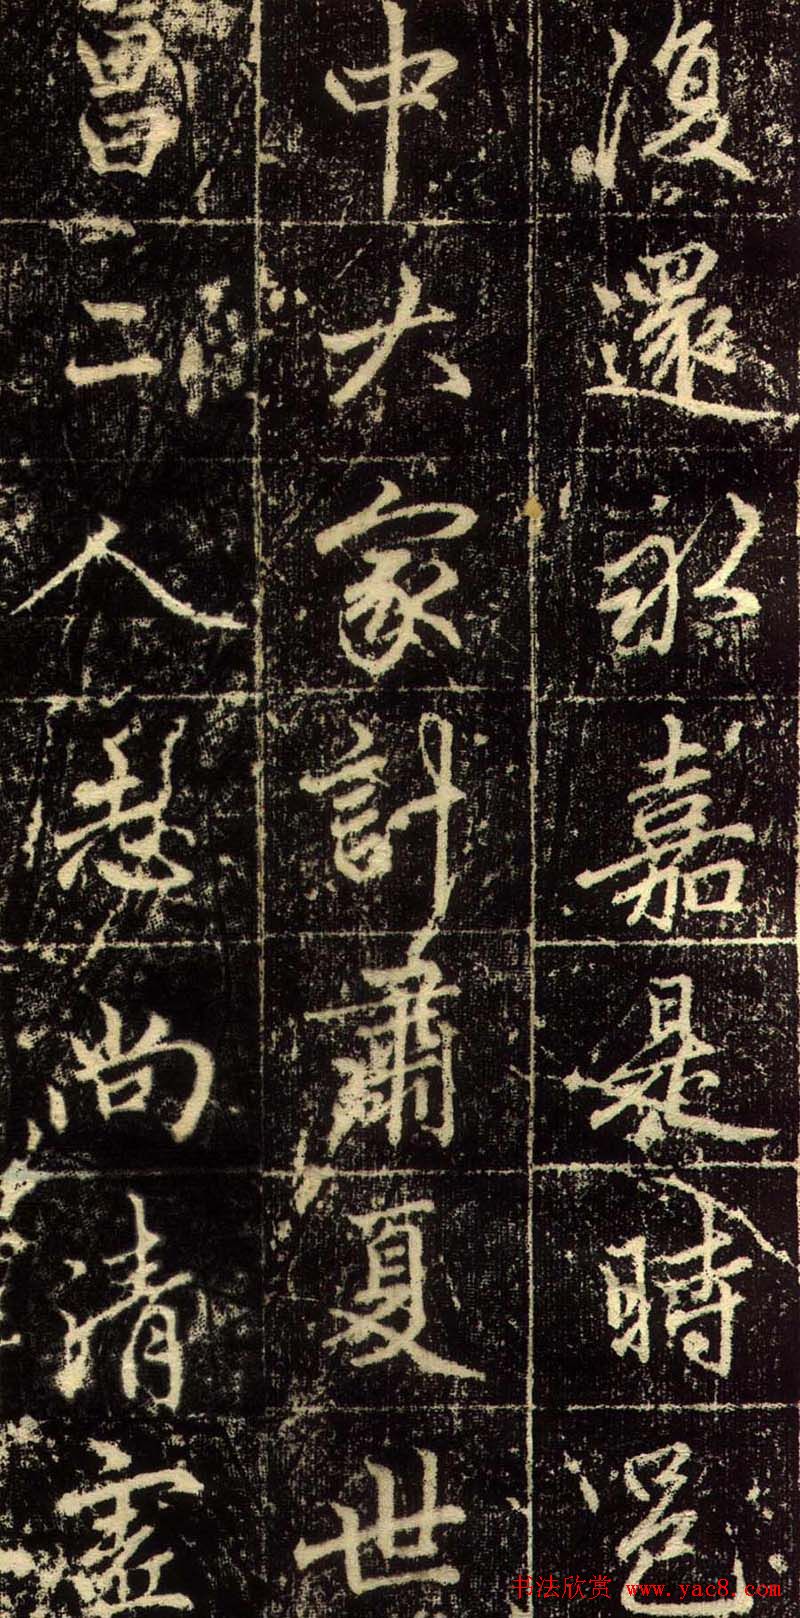 復還永嘉是時邑
中大家計蕭夏世
曹二人慧尚清虛
书法欣赏 www.yac8.com